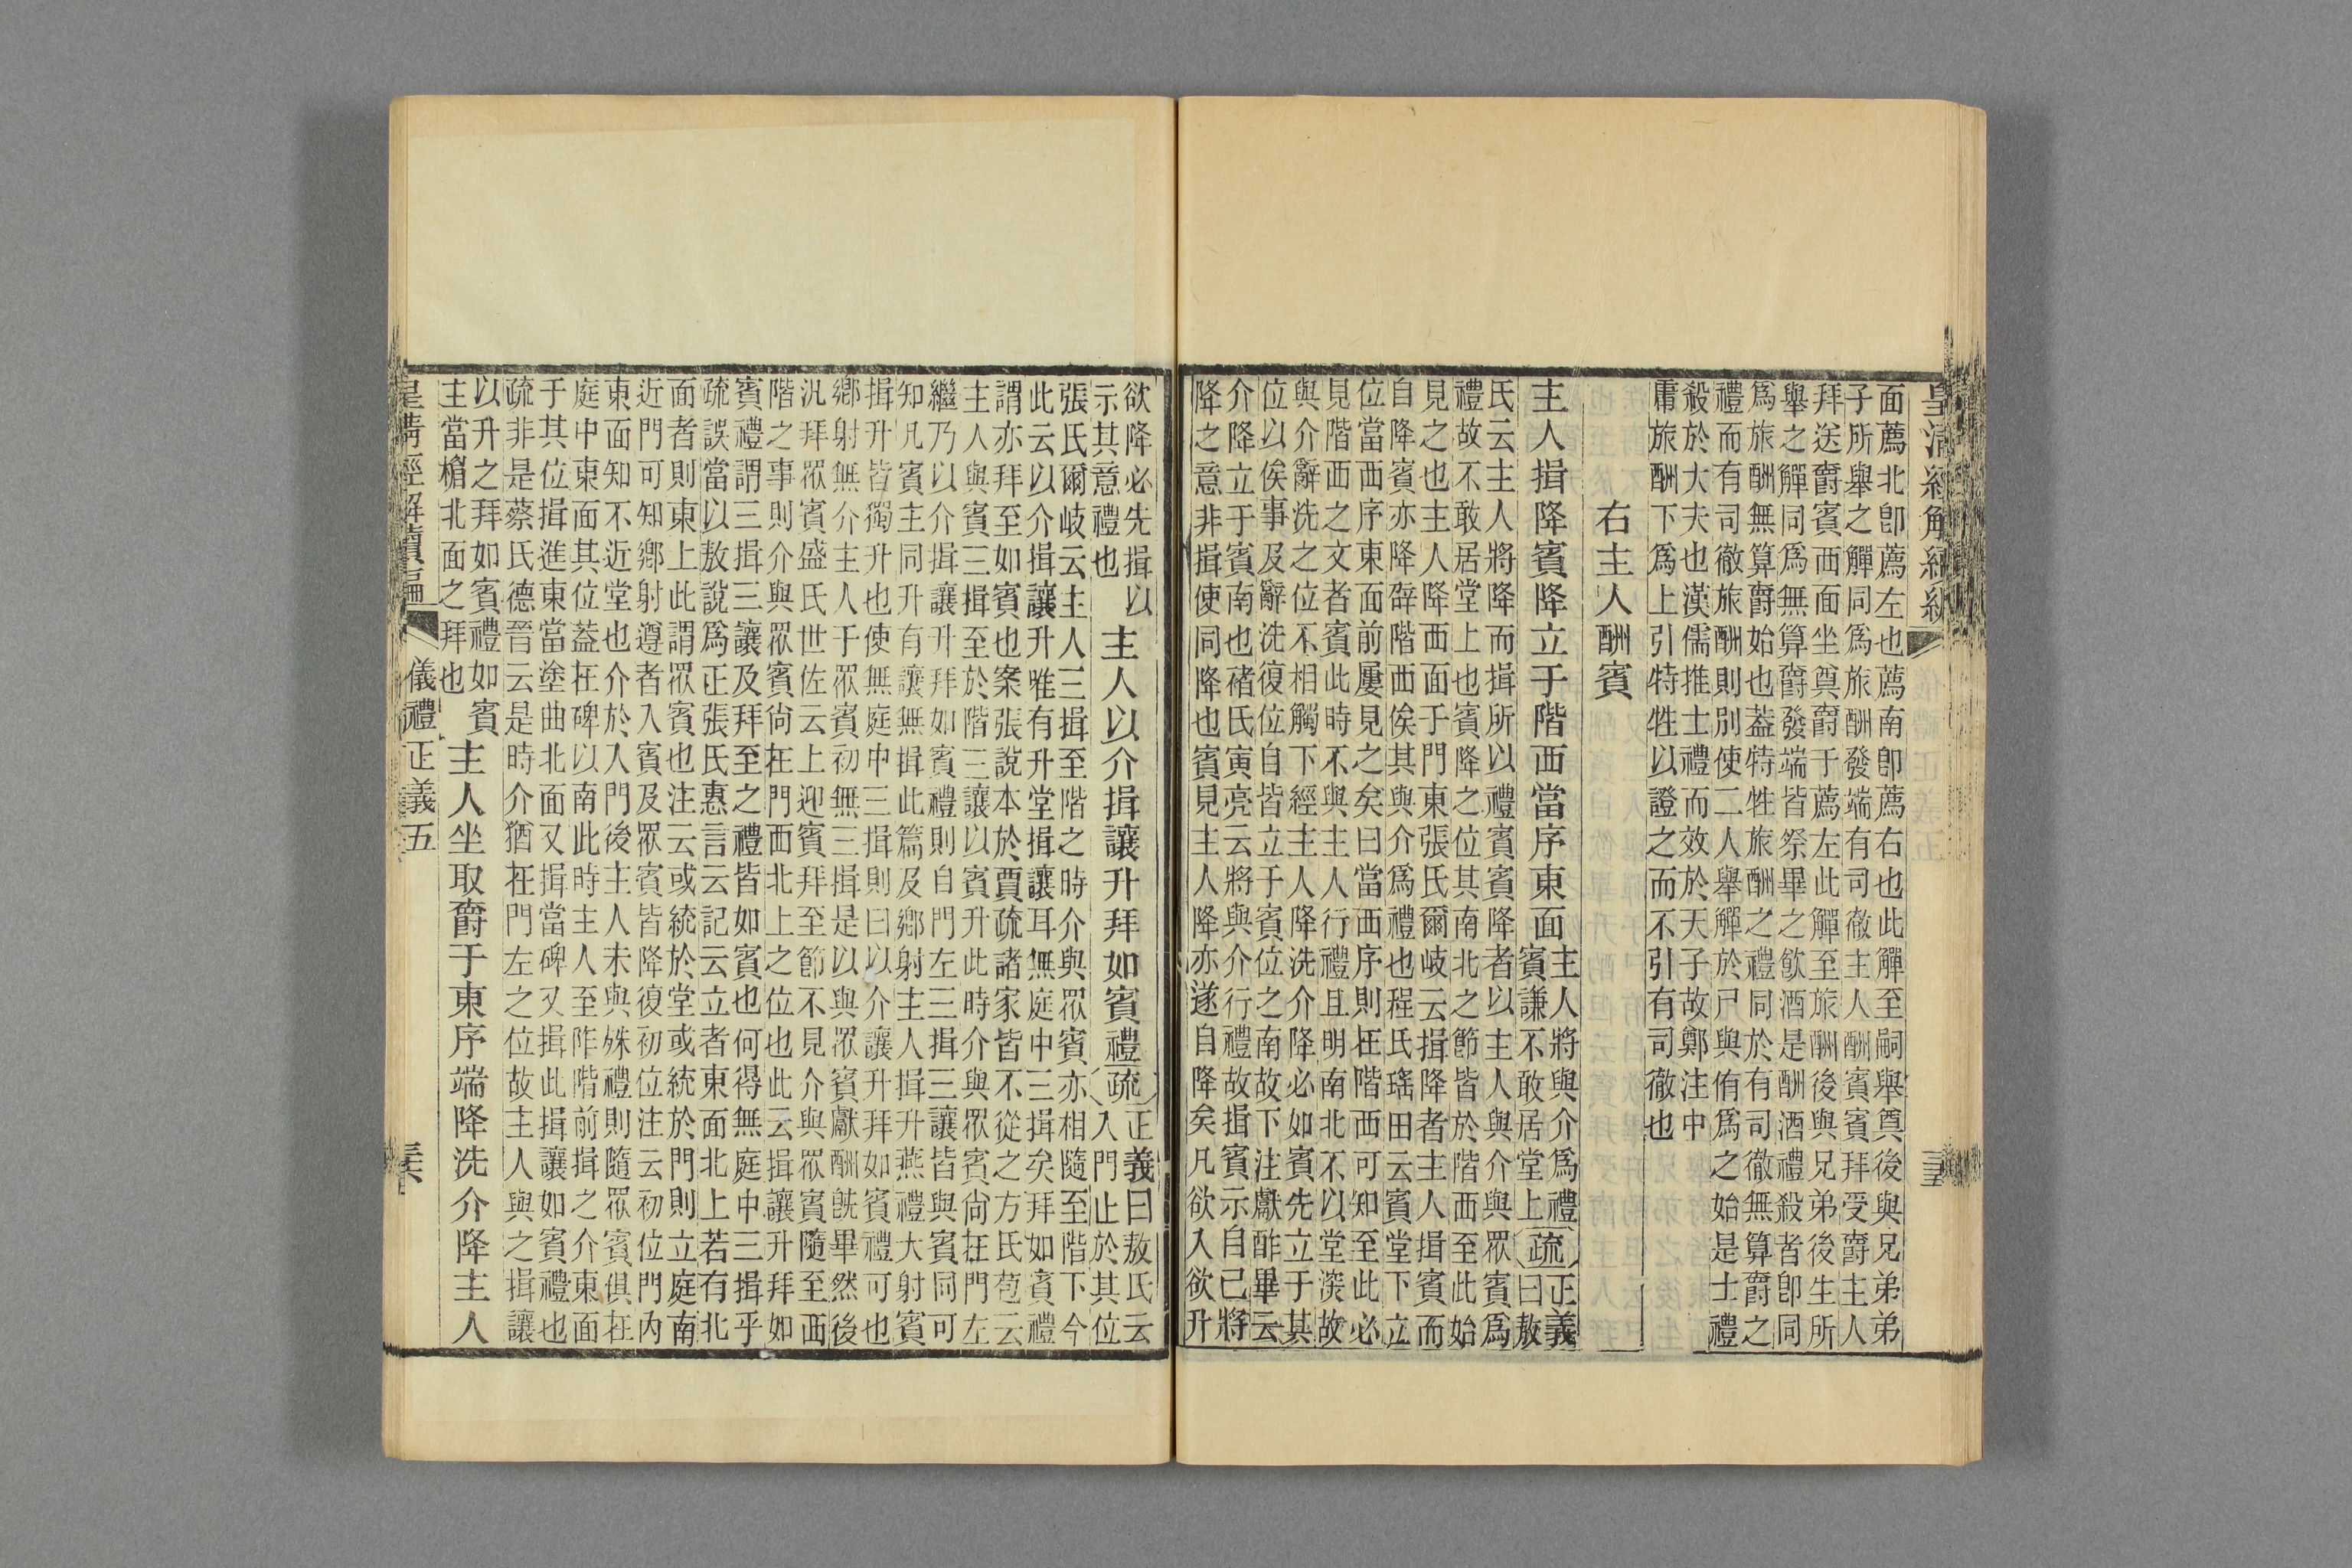 皇清經解續編
面薦北卽薦左也薦南卽薦右也此觶至嗣舉奠後與兄弟弟
子所舉之觶同爲旅酬發端有司徹主人酬賓賓拜受爵主人
拜送爵賓西面坐奠爵于薦左此觶至旅酬後與兄弟後生所
舉之觶同爲無算爵發端皆祭畢之飮酒是酬酒禮殺者卽同
爲旅酬無算爵始也蓋特牲旅酬之禮同於有司徹無算爵之
禮而有司徹旅酬則別使二人舉觶於尸與侑爲之始是士禮
殺於大夫也漢儒推士禮而效於天子故鄭注中
庸旅酬下爲上引特牲以證之而不引有司徹也
右主人酬賓
主人揖降賓降立于階西當序東面主人將與介爲禮賓謙不敢居堂上疏正義曰敖
氏云主人將降而揖所以禮賓賓降者以主人與介與眾賓爲
禮故不敢居堂上也賓降之位其南北之節皆於階西至此始
見之也主人降西面于門東張氏爾岐云揖降者主人揖賓而
自降賓亦降辟階西俟其與介爲禮也程氏瑤田云賓堂下立
位當西序東面前屢見之矣曰當西序則在階西可知至此必
見階西之文者賓此時不與主人行禮且明南北不以堂深故
與介辭洗之位不相觸下經主人降洗介降必如賓先立于其
位以俟事及辭洗復位自皆立于賓位之南故下注獻酢畢云
介降立于賓南也褚氏寅亮云將與介行禮故揖賓示自己將
降之意非揖使同降也賓見主人降亦遂自降矣凡欲入欲升
欲降必先揖以示其意禮也主人以介揖讓升拜如賓禮疏正義曰敖氏云入門止於其位
張氏爾岐云主人三揖至階之時介與眾賓亦相隨至階下今
此云以介揖讓升唯有升堂揖讓耳無庭中三揖矣拜如賓禮
謂亦拜至如賓也案張說本於賈疏諸家皆不從之方氏苞云
主人與賓三揖至於階三讓以賓升此時介與眾賓尚在門左
繼乃以介揖讓升拜如賓禮則自門左三揖三讓皆與賓同可
知凡賓主同升有讓無揖此篇及鄉射主人揖升燕禮大射賓
揖升皆獨升也使無庭中三揖則曰以介讓升拜如賓禮可也
鄉射無介主人于眾賓初無三揖是以與眾賓獻酬旣畢然後
況拜眾賓盛氏世佐云上迎賓拜至節不見介與眾賓隨至西
階之事則介與眾賓尚在門西北上之位也此云揖讓升拜如
賓禮謂三揖三讓及拜至之禮皆如賓也何得無庭中三揖乎
疏誤當以敖說爲正張氏惠言云記云立者東面北上若有北
面者則東上此謂眾賓也注云或統於堂或統於門則立庭南
近門可知鄉射遵者入賓及眾賓皆降復初位注云初位門內
東面知不近堂也介於入門後主人未與殊禮則隨眾賓俱在
庭中東面其位蓋在碑以南此時主人至阼階前揖之介東面
于其位揖進東當塗曲北面又揖當碑又揖此揖讓如賓禮也
疏非是蔡氏德晉云是時介猶在門左之位故主人與之揖讓
以升之拜如賓禮如賓主當楣北面之拜也主人坐取爵于東序端降洗介降主人
皇清經解續編 儀禮正義五